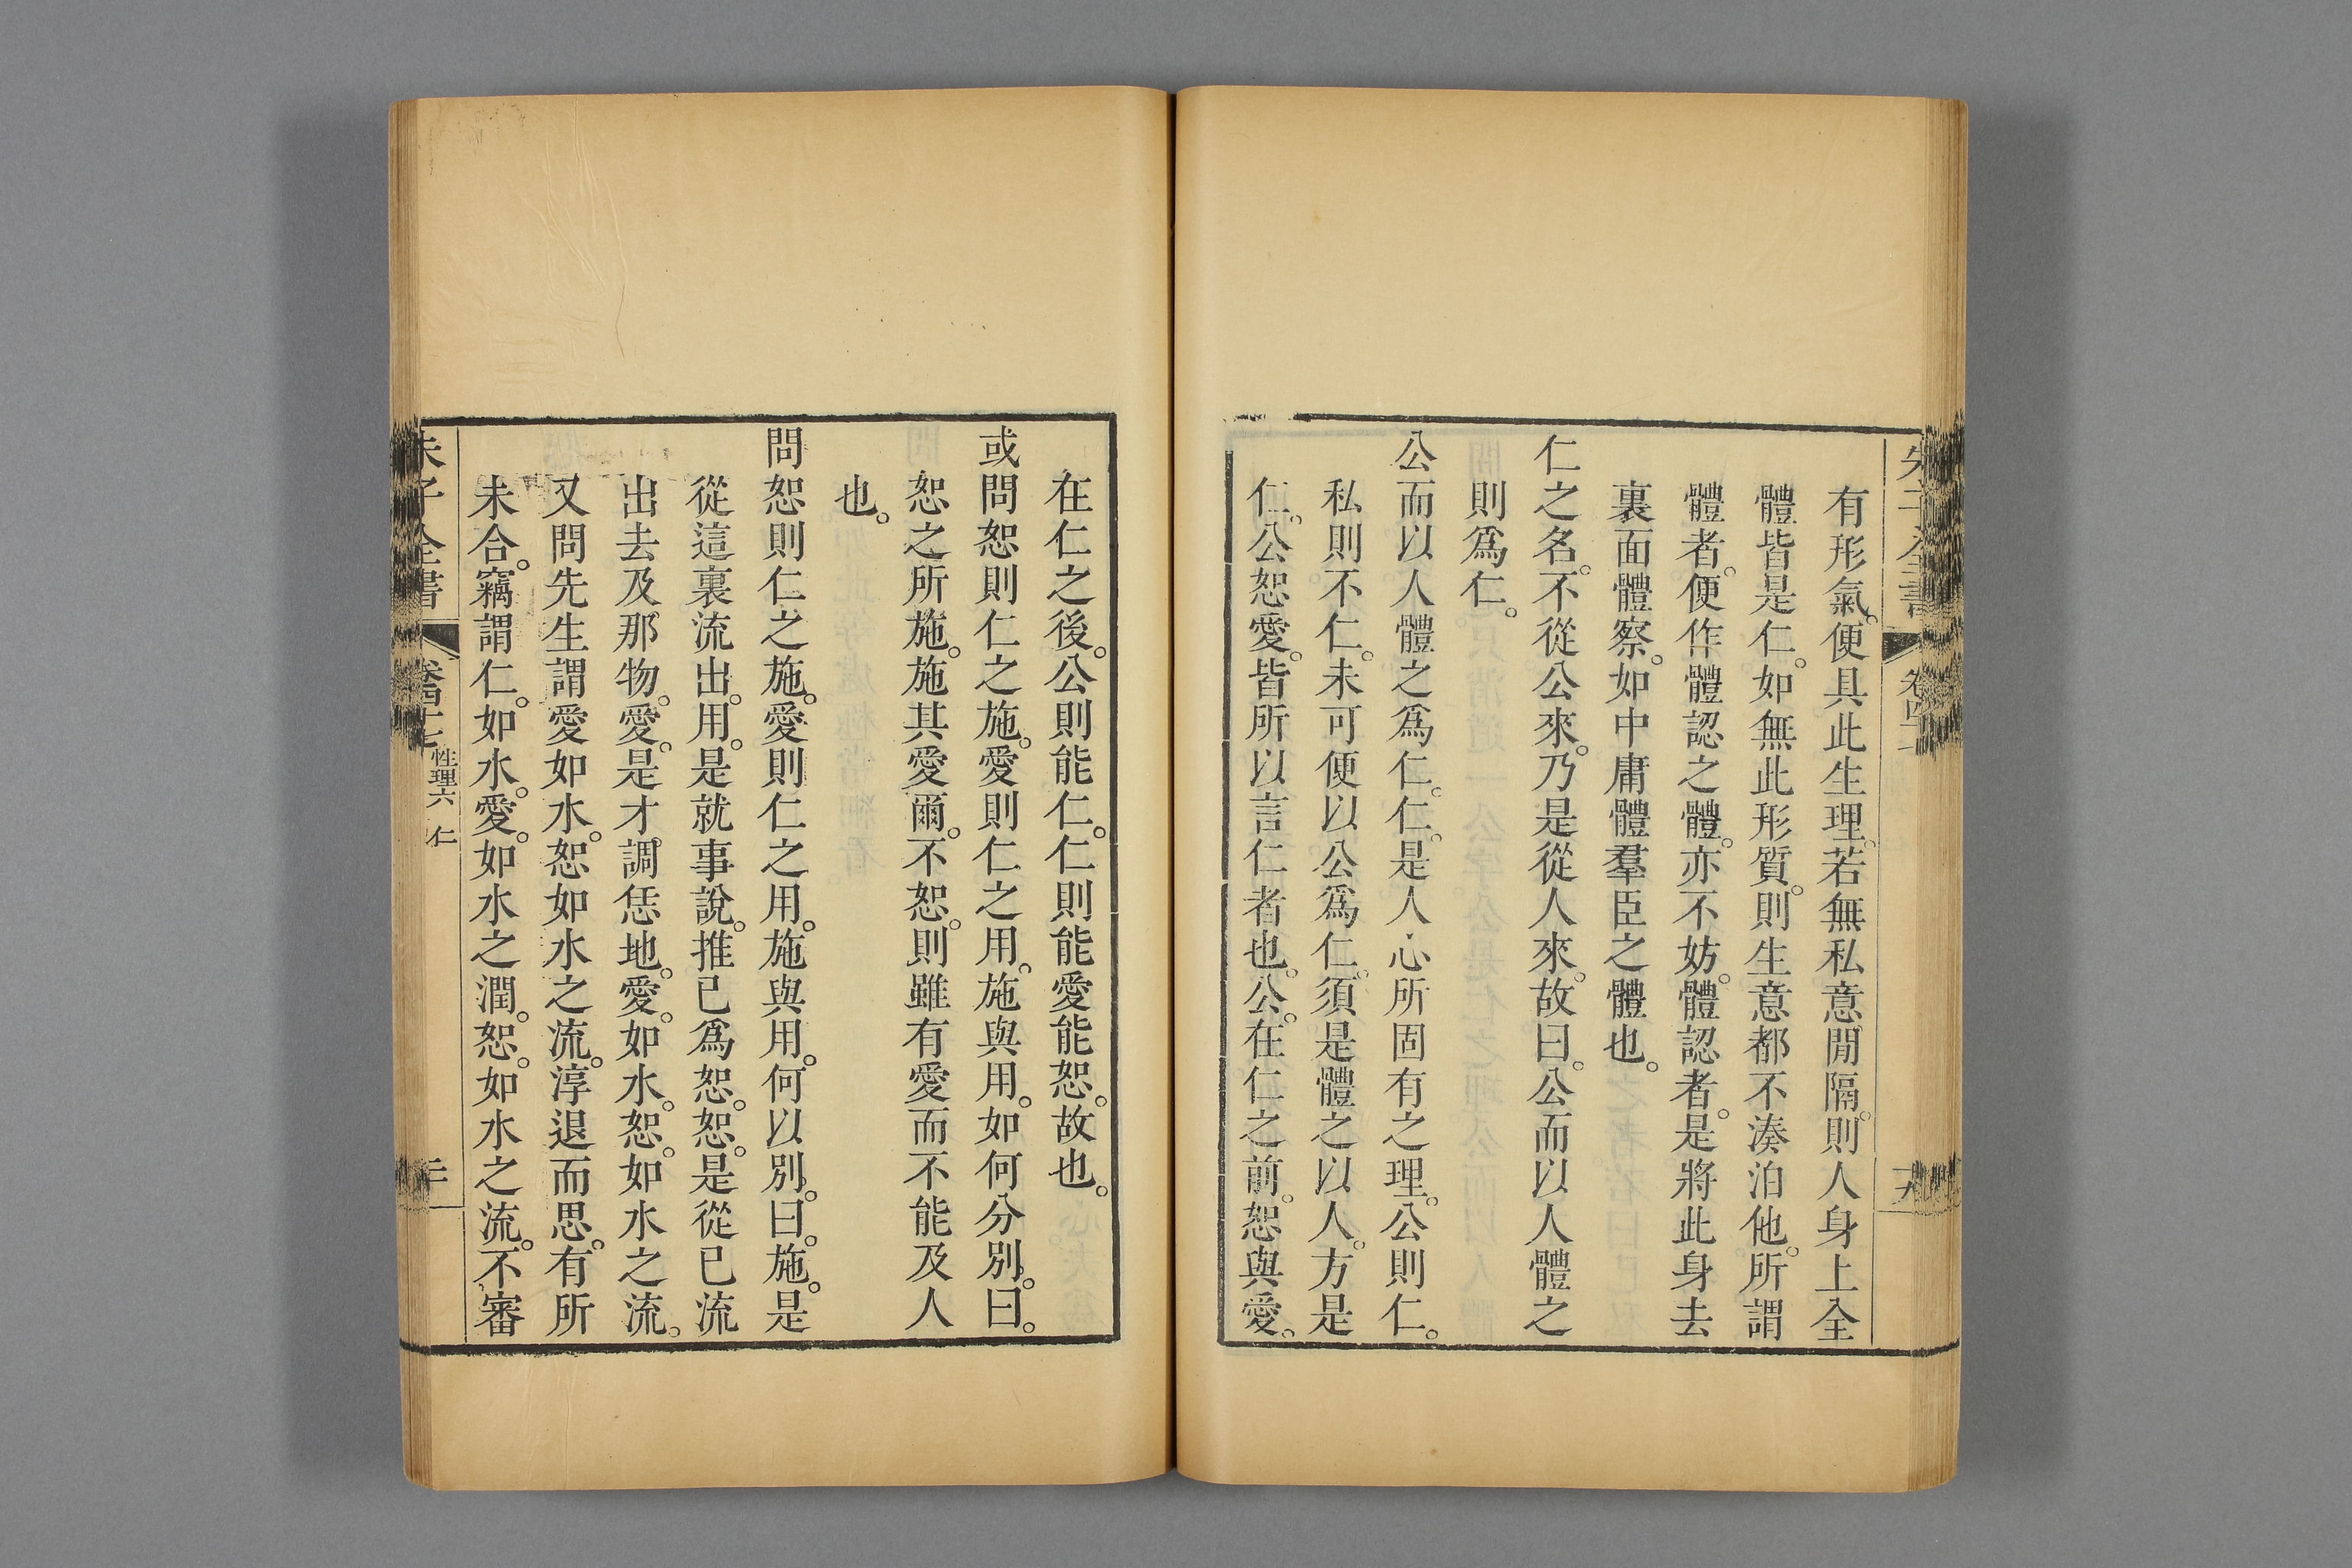 有形氣。便具此生理。若無私意閒隔。則人身上全
體皆是仁。如無此形質。則生意都不湊泊他。所謂
體者。便作體認之體。亦不妨。體認者。是將此身去
裏面體察。如中庸體羣臣之體也。
仁之名。不從公來。乃是從人來。故曰。公而以人體之
則爲仁。
公而以人體之爲仁。仁。是人心所固有之理。公則仁。
私則不仁。未可便以公爲仁。須是體之以人。方是
仁。公恕愛。皆所以言仁者也。公。在仁之前。恕與愛。
在仁之後。公則能仁。仁則能愛能恕。故也。
或問恕則仁之施。愛則仁之用。施與用。如何分別。曰。
恕之所施。施其愛爾。不恕。則雖有愛而不能及人
也。
問恕則仁之施。愛則仁之用。施與用。何以別。曰。施。是
從這裏流出。用。是就事說。推己爲恕。恕。是從己流
出去及那物。愛。是才調恁地。愛。如水。恕。如水之流。
又問先生謂愛如水。恕如水之流。淳退而思。有所
未合。竊謂仁。如水。愛。如水之潤。恕。如水之流。不審
朱子全書 卷四十七 性理六 仁